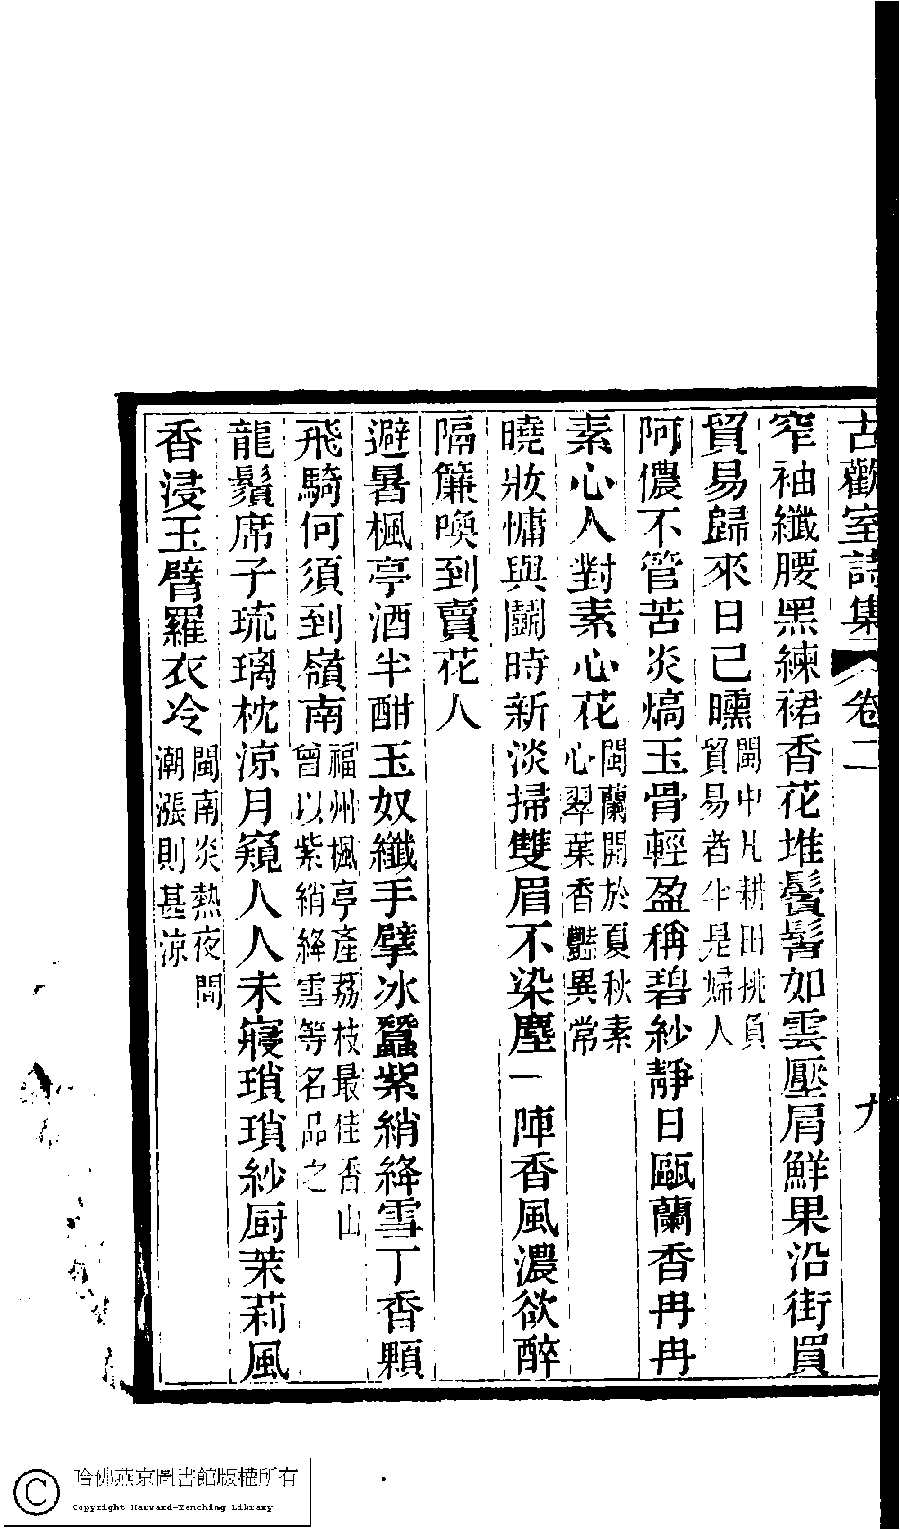 古歡室詩集 卷二 九
窄袖纖腰黑練裙香花堆鬢髻如雲壓肩鮮果沿街買
貿易歸來日已曛閩中凡耕田挑負
貿易者半是婦人
阿儂不管苦炎熇玉骨輕盈稱碧紗靜日甌蘭香冉冉
素心人對素心花閩蘭開於夏秋素
心翠葉香豔異常
曉妝慵與鬬時新淡掃雙眉不染塵一陣香風濃欲醉
隔簾喚到賣花人
避暑楓亭酒半酣玉奴纖手擘冰蠶紫綃絳雪丁香顆
飛騎何須到嶺南福州楓亭產荔枝最佳香山
曾以紫綃絳雪等名品之
龍鬚席子琉璃枕涼月窺人人未寢瑣瑣紗厨茉莉風
香浸玉臂羅衣冷閩南炎熱夜間
潮漲則甚涼
哈佛燕京圖書館版權所有
Copyright Harvard-Yenching Library